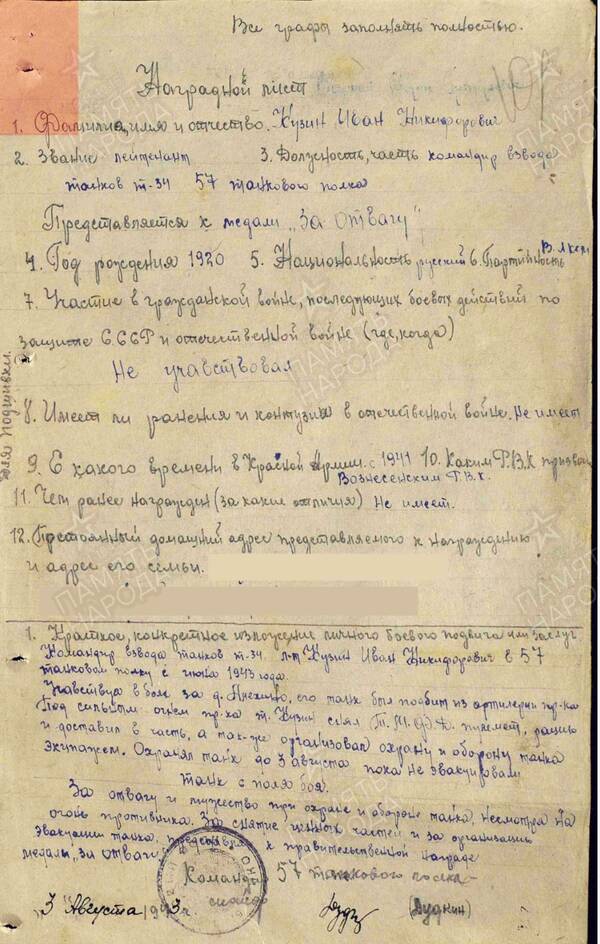 Все графы заполнять полностью.
Наградной лист
1. Фамилия, имя и отчество. Кузин Иван Никифорович
2. Звание лейтенант 3. Должность, часть командир взвода
танков т-34 57 танкового полка
Представляется к медали "За отвагу"
4. Год рождения 1920 5. Национальность русский 6. Партийность
7. Участие в гражданской войне, последующих боевых действий по
защите СССР и отечественной войне (где, когда)
Не учавствовал
8. Имеет ли ранения и контузии в отечественной войне. Не имеет
9. С какого времени в Красной Армии. с 1941 10. Каким Р.В.К призван
Вознесенским Р.В.К.
11. Чем ранее награжден (за какие отличия) Не имеет.
12. Постоянный домашний адрес представляемого к награждению
и адрес его семьи.
Для подшивки.
1. Краткое, конкретное изложение личного боевого подвига или заслуг
Командир взвода танков т-34. л-т Кузин Иван Никифорович в 57
танковом полку с июня 1943 года.
Учавствуя в бою за д. его танк был подбит из артилерии пр-ка
Под сильным огнем пр-ка т. Кузин снял пулемет, рацию
и доставил в часть, а так-же организовал охрану и оборону танка
экипажем. Охранял танк до 3 августа пока не эвакуировали
танк с поля боя.
За отвагу и мужество при охране и обороне танка, несмотря на
огонь противника. За снятие ценных частей и за организацию
эвакуации танка, к правительственной награде
медалью "за отвагу"
Командир 57 танкового полка
3 Августа 1943 г. (Дудкин)
ПАМЯТЬ НАРОДА